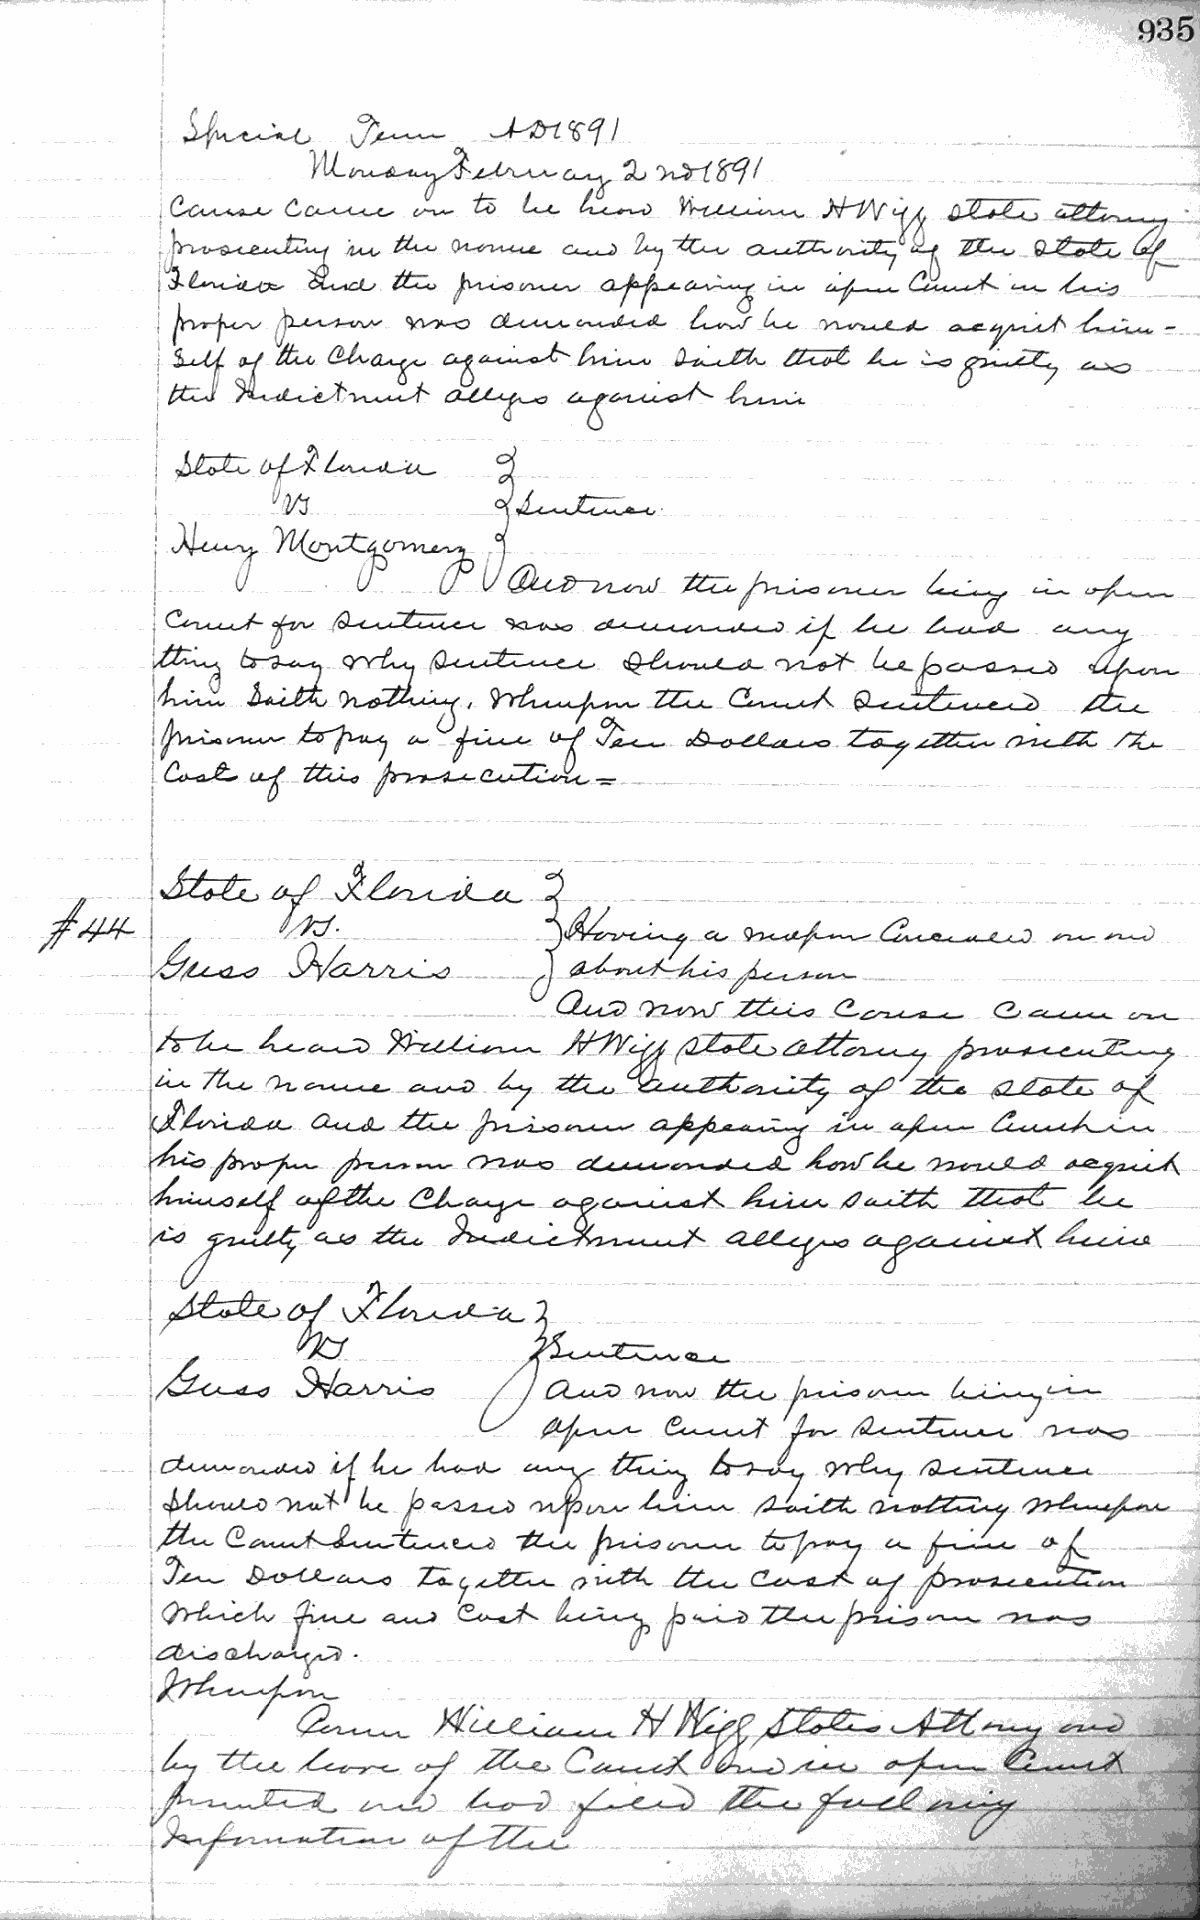 935
Special Term AD1891
Monday February 2nd 1891
Cause came on to be heard William H Wigg State attorney
prosecuting in the name and by the authority of the State of
Florida and the prisoner appearing in open Court in his
proper person was demanded how he would acquit him=
self of the Charge against him Saith that he is guilty as
the Indictment alleges against him
State of Florida
vs
Sentence
Henry Montgomery
And now the prisoner being in open
Court for Sentence was demanded if he had any
thing to say why Sentence Should not be passed upon
him Saith nothing, Whereupon the Court Sentenced the
prisoner to pay a fine of Ten Dollars together with the
Cost of this prosecution=
State of Florida
#44
vs.
Having a weapon Concealed on and
Guss Harris
about his person
And now this Cause Came on
to be heard William H Wigg State attorney prosecuting
in the name and by the authority of the State of
Florida and the prisoner appearing in open Court in
his proper person was demanded how he would acquit
himself of the Charge against him saith that he
is guilty as the Indictment alleges against him
State of Florida
vs
Sentence
Guss Harris
And now the prisoner being in
open Court for Sentence was
demanded if he had any thing to say why Sentence
Should not be passed upon him Saith nothing Whereupon
the Court Sentenced the prisoner to pay a fine of
Ten Dollars together with the Cost of prosecution
Which fine and Cost being paid the prisoner was
discharged.
Whereupon
Came William H Wigg States Attorny and
by the leave of the Court and in open Court
presented and had filed the following
Information of the